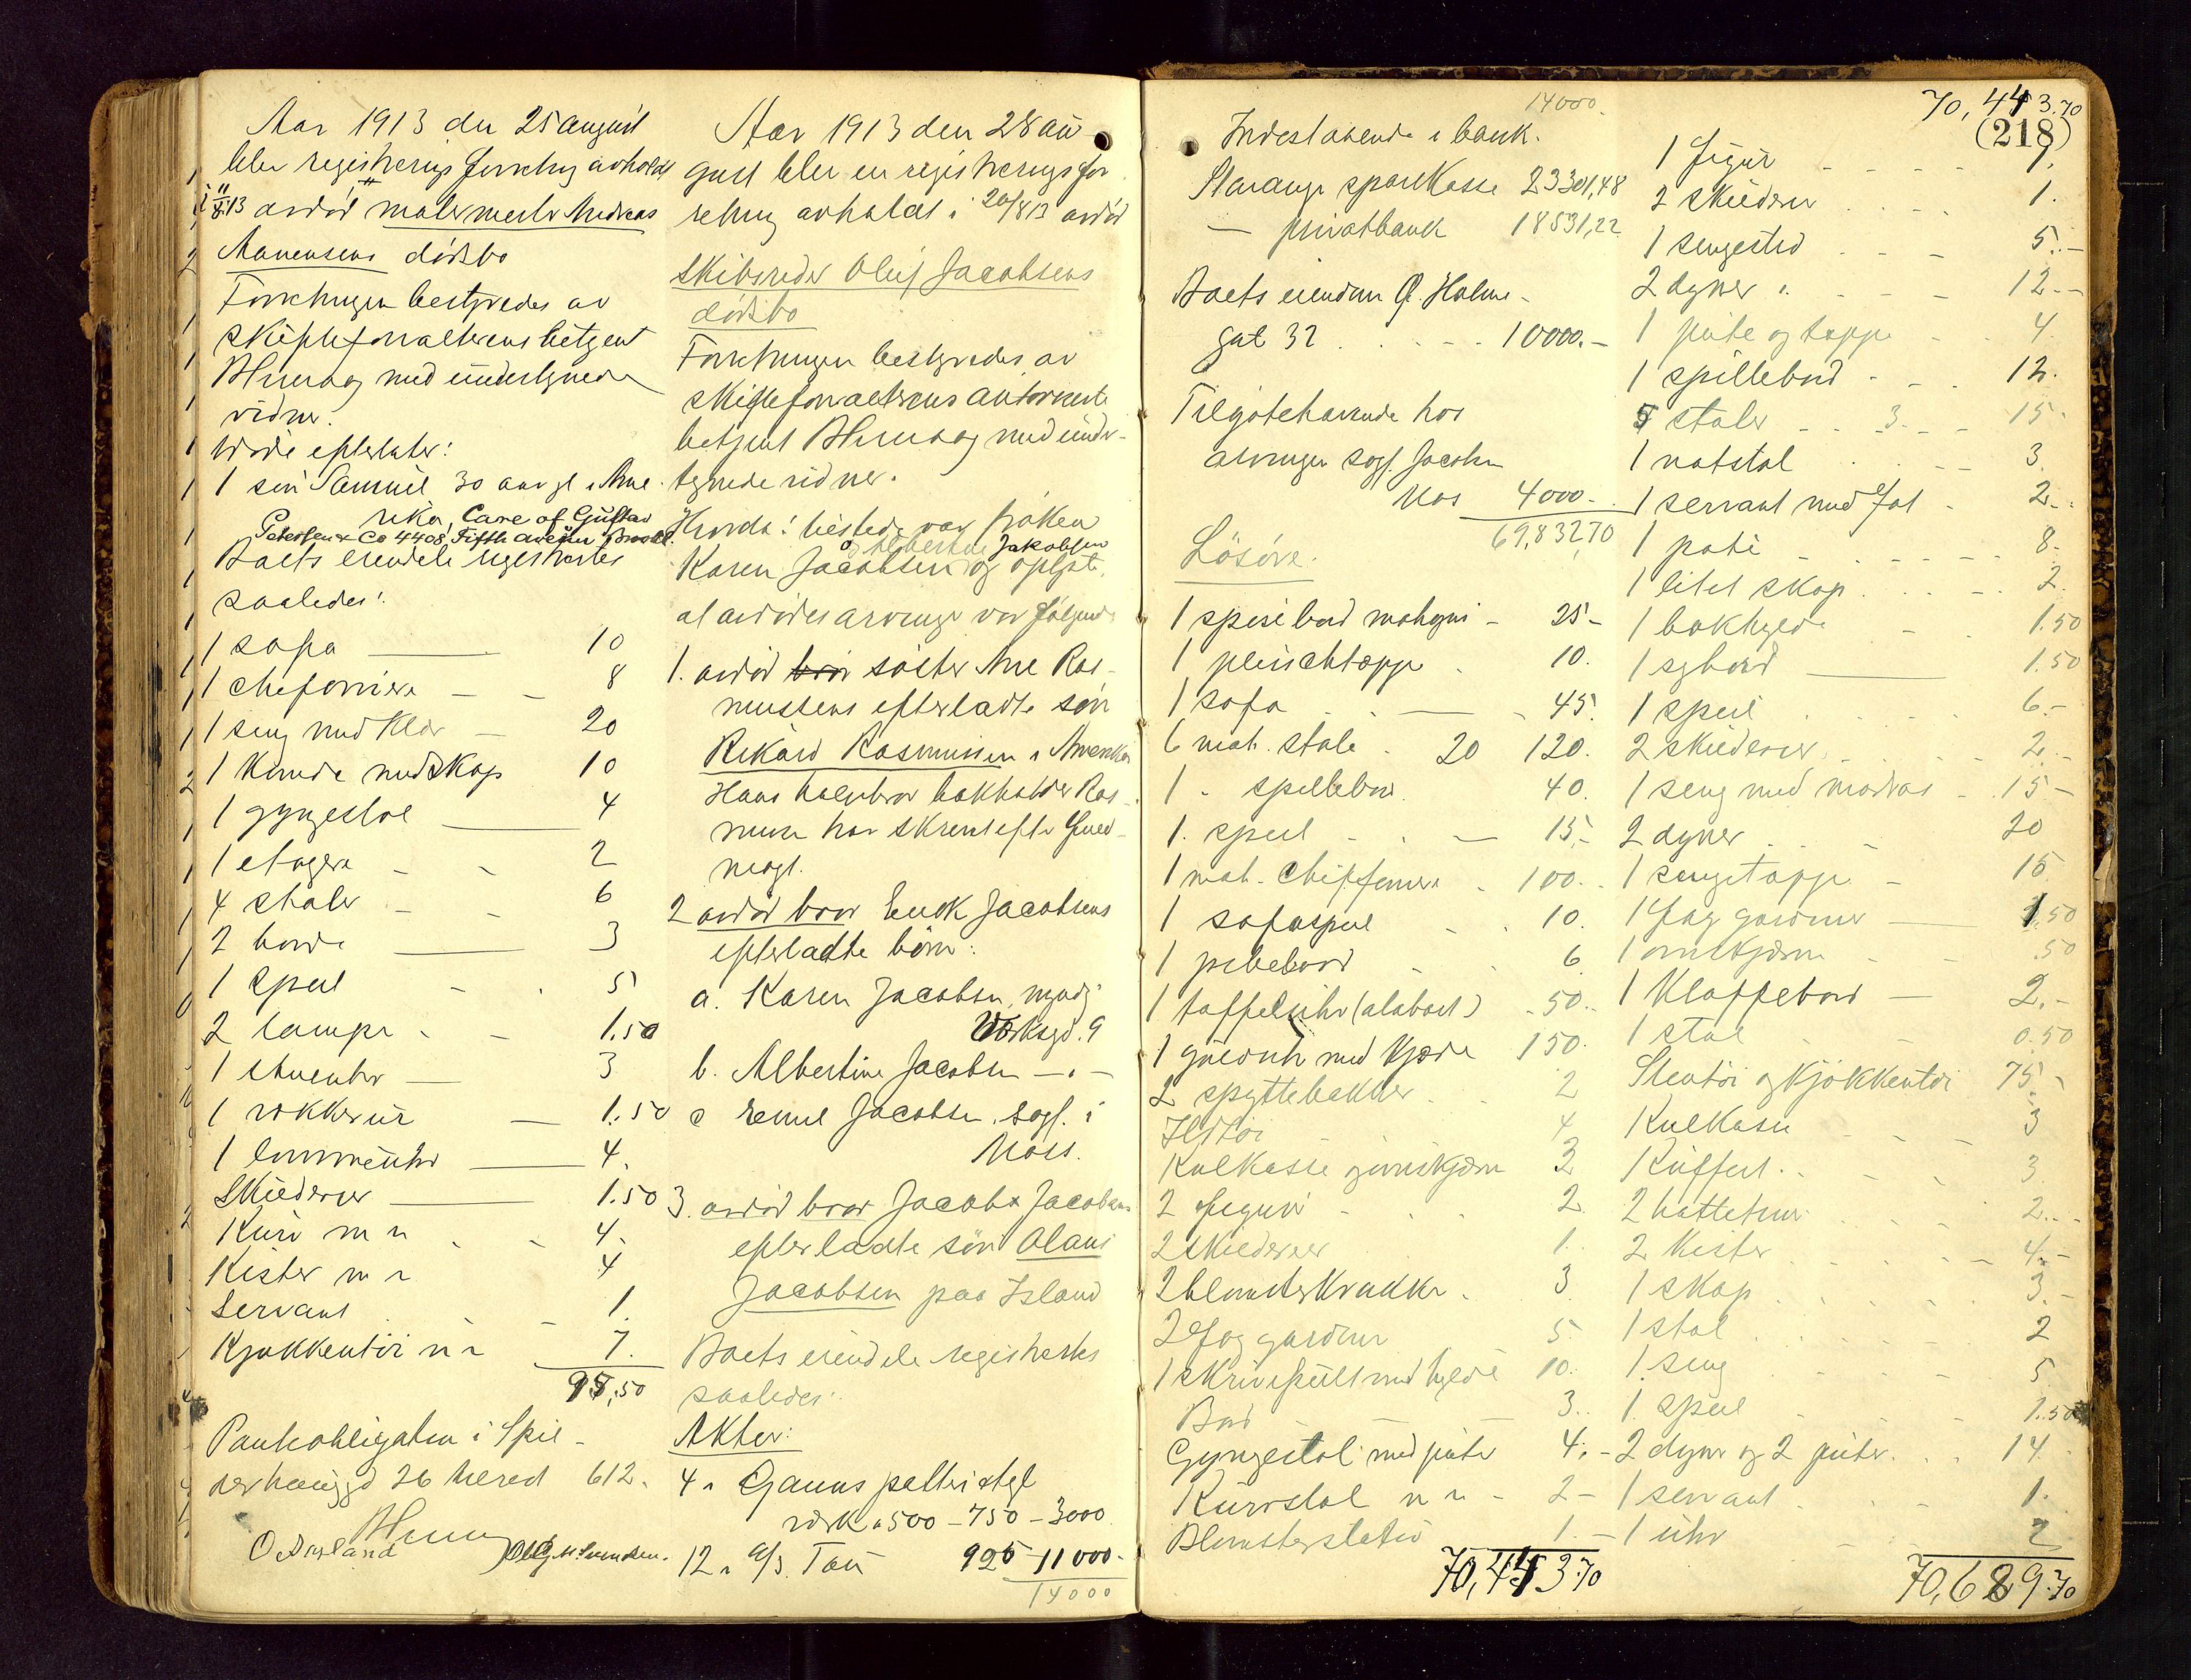 Aar 1913 den 25 august
blev registrerings forretning avholdt
i 11/8 13 avdød malermester Andreas
Aanensens dødsbo
Forretningen bestyredes av
skifteforvalterens betjent
med undertegnede
vidner.
Avdøde efterlater:
1 søn Samuel 30 aar gl. i Ame-
rika, Care of Gustav
Petersen & Co 4408, Fifth Avenue Brookl.
Boets eiendele registrertes
saaledes:
1 sofa 10
1 chefoniere 8
1 seng med klær 20
1 komode med skap 10
1 gyngestol 4
1 etagere 2
4 stoler 6
2 borde 3
1 speil 5
2 lamper 1.50
1 stueuhr 3
1 vækkerur 1.50
1 lommeuhr 4.
Skilderier 1.50
Kurv m m 4.
Kister m m 4
Servant 1.
Kjøkkentøi m m 7.
95,50
Panteobligation i Spil-
derhauggd 26 hered 612.
Aar 1913 den 28 au-
gust blev en registreringsfor
retning avholdt i 20/8 13 avdød
skibsreder Oluf Jacobsens
dødsbo
Forretningen bestyredes av
skifteforvalterens autoriserte
betjent med under-
tegnede vidner.
Hvorda: tilstede var frøken
og Albertine Jakobsen
Karen Jacobsen og oplyste
at avdødes arvinger var følgende
1. avdød bror søster Ane Ras-
mussens efterladte søn
Rikard Rasmussen i Amerika
Hans halvbror bokholder Ras-
mussen har skrevet efter fuld-
magt.
2 avdød bror Enok Jacobsens
efterladte børn:
a. Karen Jacobsen, myndig
Værksgd. 9
b. Albertine Jacobsen — " —
c Emil Jacobsen, sagf. i
Moss.
3. avdød bror Jacob Jacobsens
efterladte søn Olaus
Jacobsen paa Island
Boets eiendele registrertes
saaledes:
Akter:
4 " Gauns potteri & tegl
verk a 500 – 750 – 3000
12 " A/S. Tou 925 – 11000.-
14000
14000.
Indestaaende i bank.
Stavanger sparekasse 23301,48
— privatbank 18531,22
Boets eiendom Ø. Holme-
gat 32 10000.–
Tilgodehavende hos
arvingen sagf. Jacobsen
Mos 4000.–
69,832,70
Løsøre.
1 spisebord mahogni 25–
1 pluschtæppe 10.
1 sofa 45.
6 mah. stole 20 120.
1 " spillebord 40.
1. speil 15,–
1 mah. Chiffoniere 100.
1 sofaspeil 10.
1 pibebord 6
1 taffeluhr (alabast) 50.
1 gulduhr med kjæde 150.
2 spyttebakker 2
Ildtøi 4
Kulkasse og ovnskjærm 3
2 figurer 2
2 skilderier 1.
2 blomsterkrukker 3
2 fag gardiner 5
1 skrivepult med hylde 10.
Bord 3.
Gyngestol med puter 4.–
Kurvstol m m 2–
Blomsterstativ 1.–
70,443.70
70,443.70
(218)
1 figur 1.
2 skilderier 1.
1 sengested 5.–
2 dyner 12.–
1 pute og tæppe 4.
1 spillebord 12.
5 stoler 3. 15.
1 natstol 3.
1 servant med fat 2.
1 potte 8.
1 litet skap 2.
1 bokhylde 1.50
1 sybord 1.50
1 speil 6.–
2 skilderier 2.–
1 seng med madras 15–
2 dyner 20
1 sengetæppe 15
1 fag gardiner 1.50
1 ovnskjærm .50
1 Klaffebord 2.–
1 stol 0.50
Stentøi og kjøkkentøi 75.–
Kulkasse 3
Kuffert 3.
2 hatteetuier 2.
2 Kister 4.–
1 skap 3.–
1 stol 2
1 seng 5
1 speil 1.50
2 dyner og 2 puter 14.
1 servant 1.
1 uhr 2
70,689.70